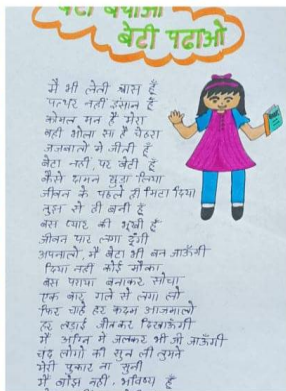 बेटी बचाओ
बेटी पढाओ
मै भी लेती श्वास हूँ
पत्थर नहीं इंसान हूँ
कोमल मन है मेरा
वही भोला सा है चेहरा
जजबातों में जीती हूँ
बेटा नहीं, पर बेटी हूँ
कैसे दामन छुड़ा लिया
जीवन के पहले ही मिटा दिया
तुझ से ही बनी हूँ
बस प्यार की भूखी हूँ
जीवन पार लगा दूंगी
अपनालो, मै बेटा भी बन जाऊँगी
दिया नहीं कोई मौका
बस पराया बनाकर सोचा
एक बार गले से लगा लो
फिर चाहे हर कदम आजमालो
हर लड़ाई जीतकर दिखाऊंगी
मै अग्नि में जलकर भी जी जाऊँगी
चंद लोगो की सुन ली तुमने
मेरी पुकार ना सुनी
मैं बोझ नहीं, भविष्य हूँ